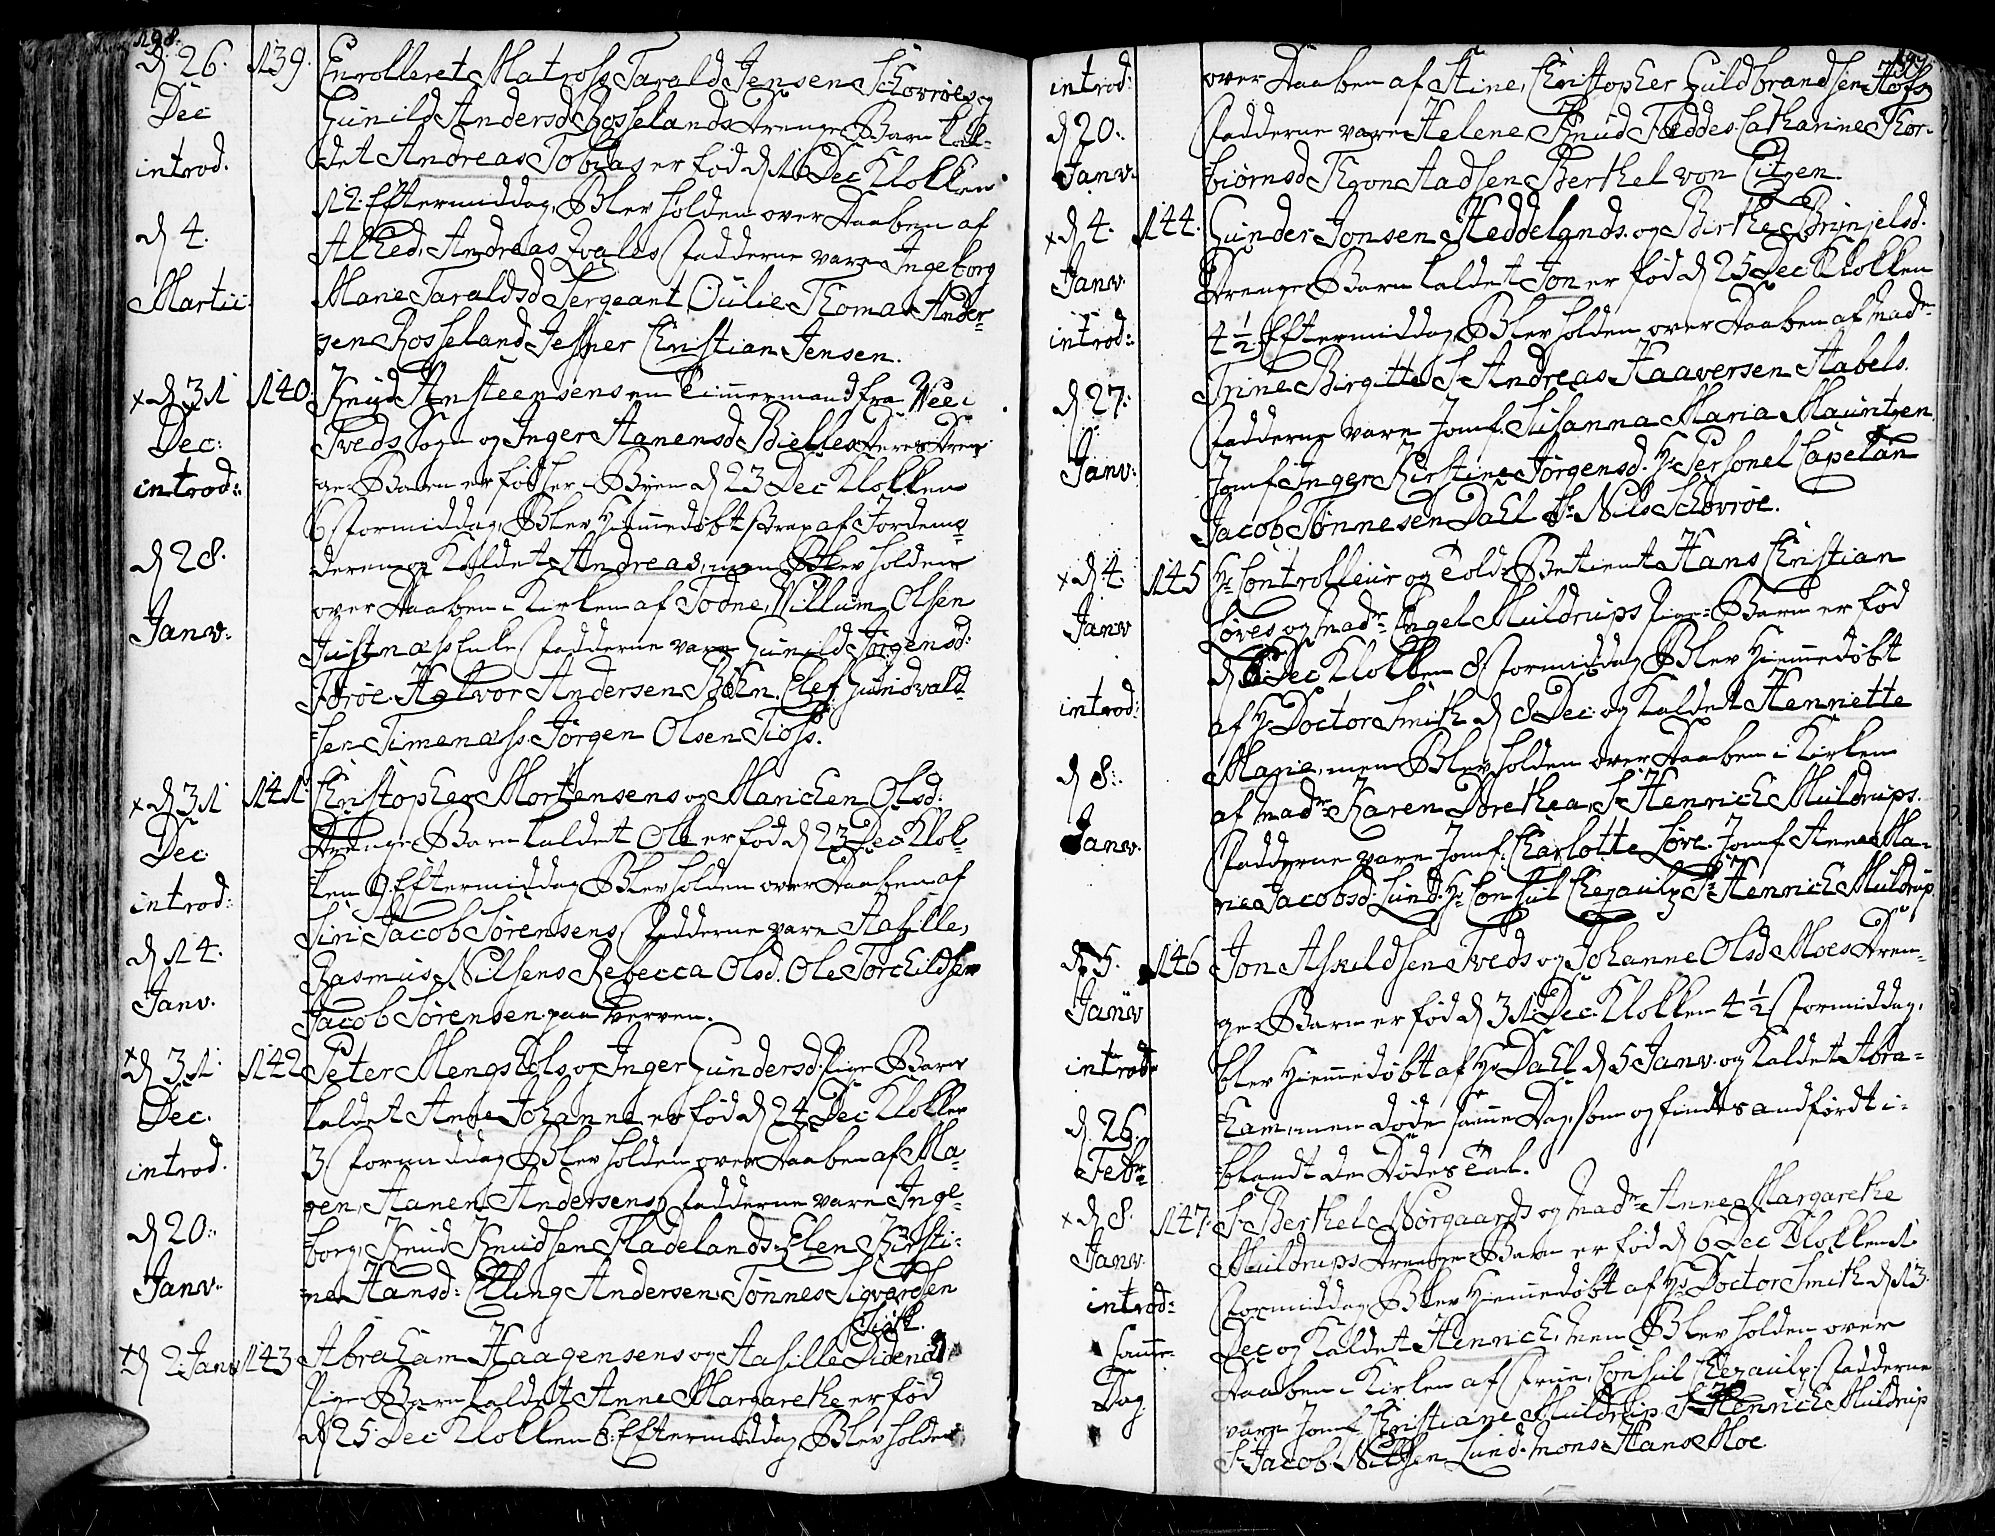 198.
d 26. Dec introd. d 4. Martii
139. Enrolleret Matross Tarald Jensen Schovrøes og
Gunild Andersd Rosselands Drenge-Barn kal-
det Andreas Tobias er fød d 16 Dec Klokken
12. Eftermiddag, Blev holden over Daaben af
Alhed, Andreas Qvales Fadderne vare Ingeborg
Marie Taraldsd Sergeant Oulie Thomas Ander-
sen Rosseland Jesper Christian Jensen.
x d 31 Dec: introd: d 28. Janv:
140 Knud Ansteensens en Timmermand fra
Tveds Sogn og Inger Aanensd Bielles deres Dren-
ge-Barn er fød her i Byen d 23 Dec Klokken
6 Formiddag, Blev Hiemmedøbt strax af Jordemo-
deren og Kaldet Andreas, men Blev holden
over Daaben i Kirken af Todne, Villum Olsen
Enke Fadderne vare Gunild Jørgensd:
Halvor Andersen
-sen Jørgen Olsen
x d 31 Dec introd: d 14. Janv.
141 Christopher Mortensens og Marichen Olsd:
Drenge-Barn kaldet Ole er fød d 23 Dec Klok-
ken 9 Eftermiddag Blev holden over Daaben af
Siri Jacob Sørensens, Fadderne vare Aasille,
Rasmus Nilsens Rebecca Olsd. Ole Torchildsen
Jacob Sørensen paa Verven.
x d 31. Dec. introd. d 20. Janv.
142 Peter Mengshols og Inger Gundersd: Pige-Barn
kaldet Anne Johanne er fød d 24 Dec Klokken
3 Formiddag Blev holden over Daaben af Ma-
ren, Aanen Andersens, Fadderne vare Inge-
borg, Knud Knudsen Fladelands. Elen Kirsti-
ne Hansd: Elling Andersen Tønnes Sigvardsen
x d 2 Janv
143 Abraham Haagensens og Aasille
Pige Barn kaldet Anne Margarethe er fød
d 25 Dec Klokken 6 Eftermiddag Blev holden
introd: d 20. Janv.
over Daaben af Stine, Christopher Guldbrandsen Hofs
Fadderne vare Helene, Knud Fæddes. Catharine Thor-
biørnsd Thron Aadsen Berthel von
x d 4. Janv. introd: d 27. Janv:
144. Gunder Jonsen Heddelands. og Birthe Brynjelsd.
Drenge Barn kaldet Jon er fød d 25 Dec Klokken
4 1/2 Eftermiddag Blev holden over Daaben af Madme
Trine Birgitte Sr Andreas Haaversen Stabels.
Fadderne vare Jomf. Susanna Maria Mauritzen
Jomf Inger Kirstine Jørgensd. Hr Personel Capelan
Jacob Tønnesen Dahl Sr. Nils Schovrøe.
x d 4. Janv introd: d 8. Janv.
145 Hr Controlleur og Told-Betient Hans Christian
Løves og Madme Engel Muldrups Pige-Barn er fød
d 6 Dec Klokken 8 Formiddag Blev Hiemmedøbt
af Hr Doctor Smith d 8 Dec. og Kaldet Henriette
Marie, men Blev holden over Daaben i Kirken
af Madme Karen Dorethea, Sr Henrich Muldrups.
Fadderne vare Jomf. Charlotte Løve. Jomf Anne Ma-
rie Jacobsd: Lund. Hr Consul Chezaulx Sr Henrich Muldrup
d 5. Janv introd: d. 26. Febr:
146 Jon Askildsen Tveds og Johanne Olsd Moes Dren-
ge-Barn er fød d 31. Dec. Klokken 4 1/2 Formiddag,
blev Hiemmedøbt af Hr Dahl d 5 Janv. og Kaldet Abra-
ham, men døde samme Dag, som og findes andført i-
blandt de Dødes Tal.
x d 8. Janv. introd: samme Dag
147. Sr Berthel Nørgaards og Madme Anne Margarethe
Muldrups Drenge-Barn er fød d 6 Dec Klokken 1
Formiddag, Blev Hiemmedøbt af Hr Doctor Smith d 13.
Dec og Kaldet Henrich, men Blev holden over
Daaben i Kirken af Frue, Consul Chezaulx. Fadderne
vare Jomf Christiane Muldrup Sr Henrich Muldrup
Sr Jacob Nilsen Lund. Mons: Hans Moe